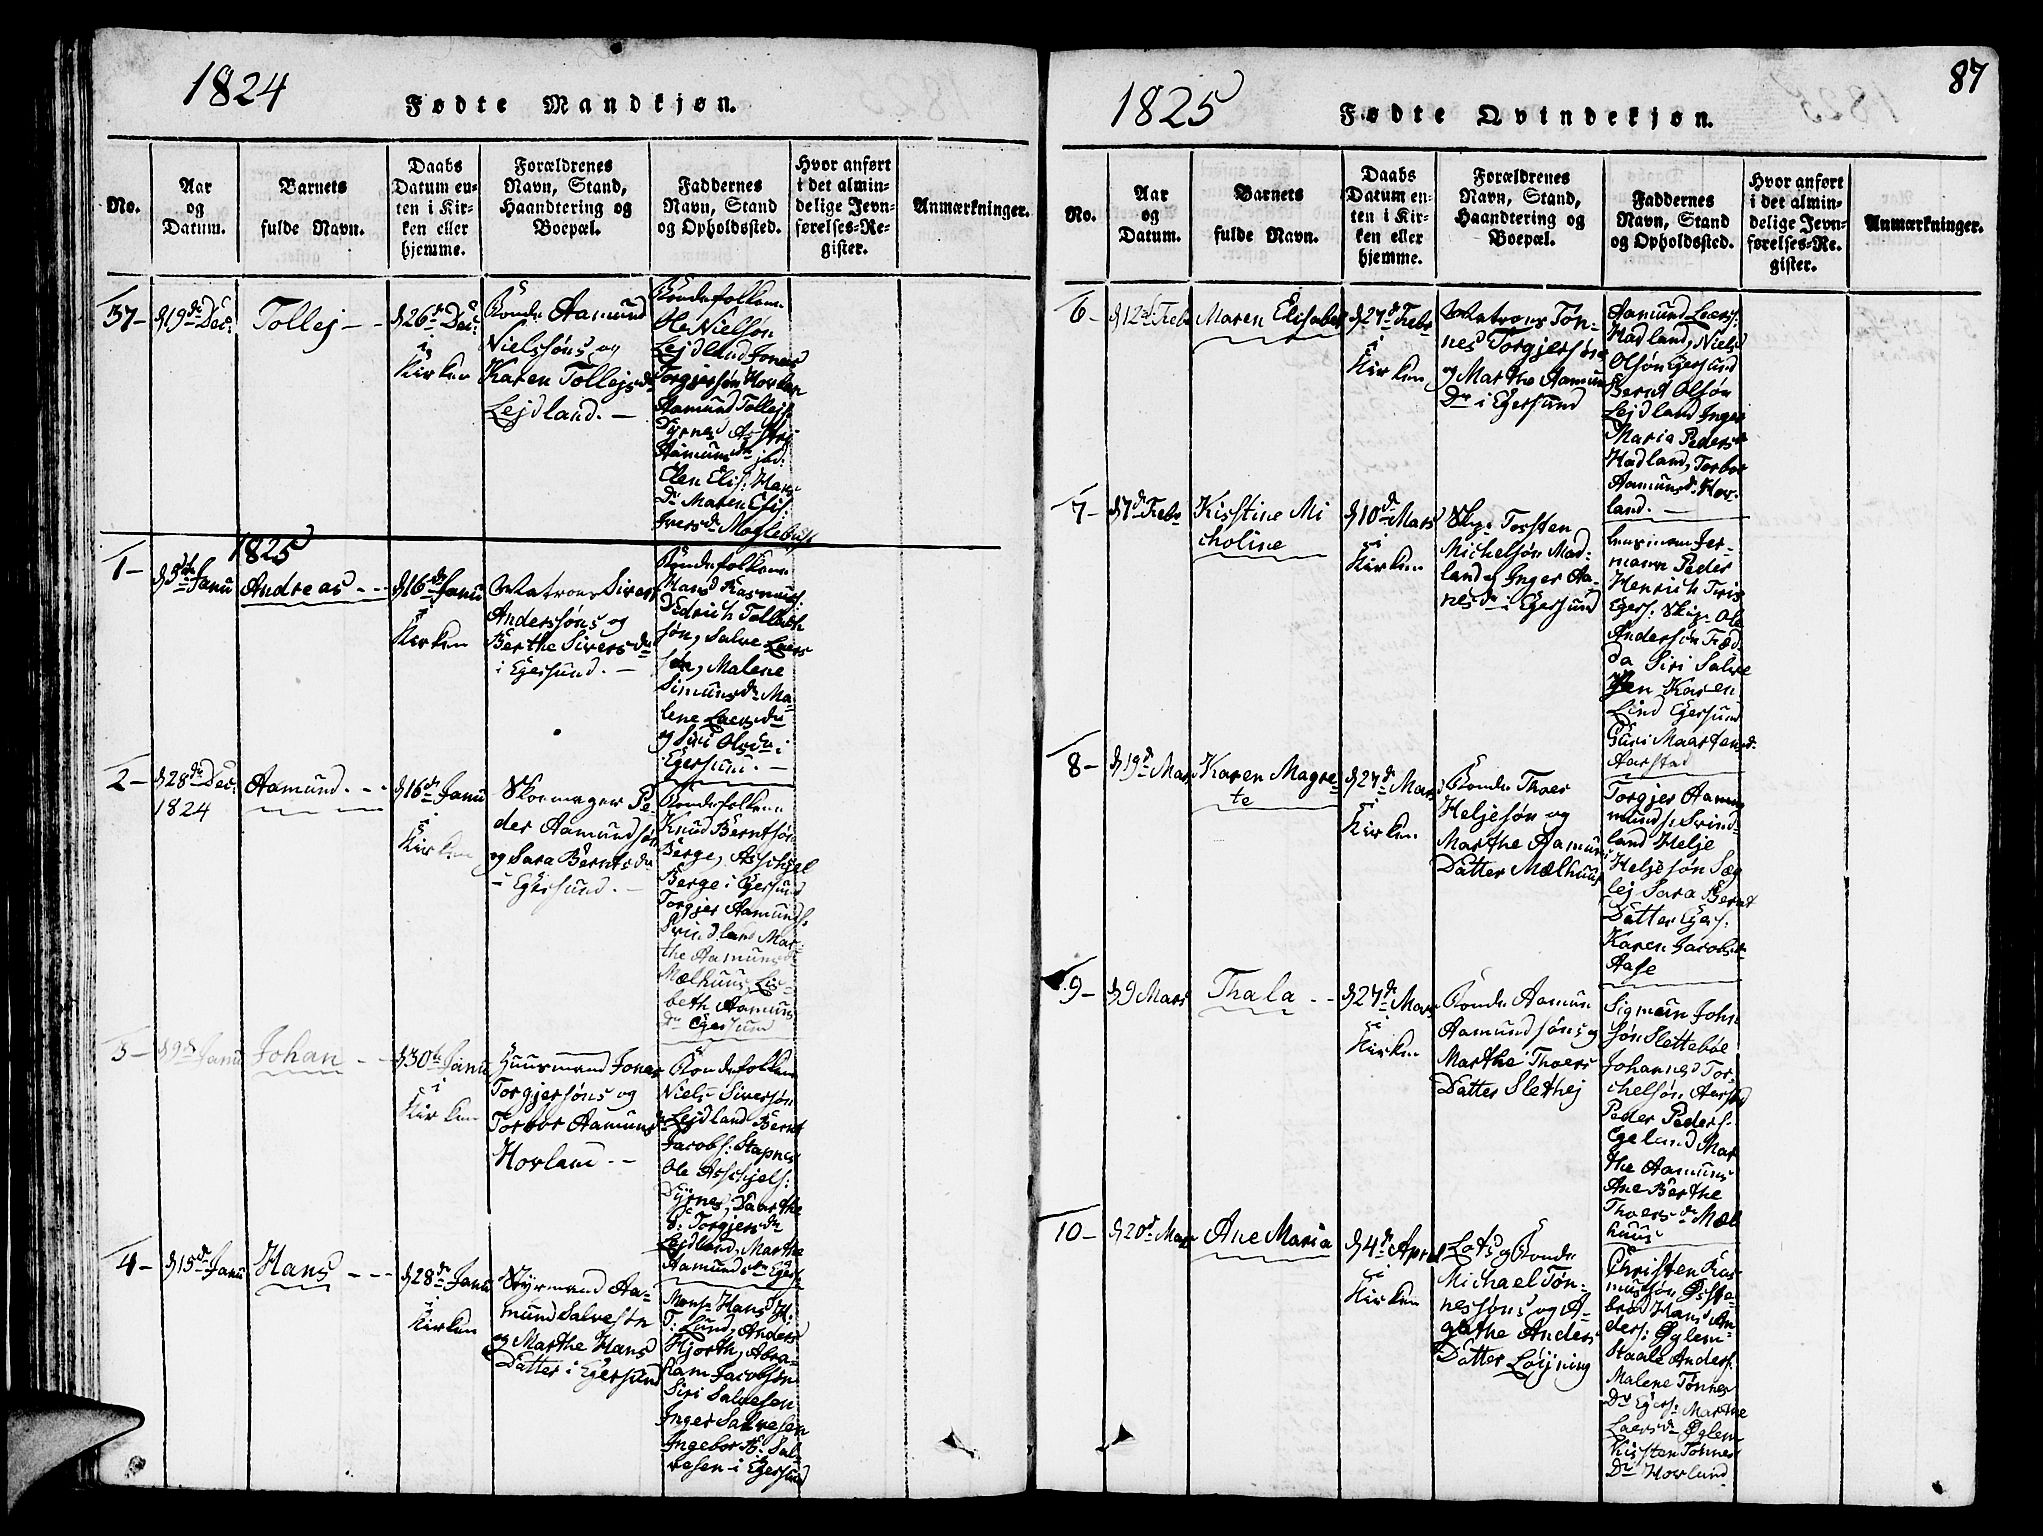 1824
Fødte Mandkjøn.
No.
Aar
og
Datum.
Barnets
fulde Navn.
Daabs
Datum en-
ten i Kir-
ken eller
hjemme.
Forældrenes
Navn, Stand,
Haandtering og
Boepæl.
Faddernes
Navn, Stand
og Opholdssted.
Hvor anført
i det almin-
delige Jevn-
førelses-Re-
gister.
Anmærkninger.
37-
d 19de Dec:
Tollej - -
d 26de Dec:
i
Kirken
Bonde Aamund
Nielssøns og
Karen Tollejsdr
Lejdland. -
Bondefolkene
Ole Nielsøn
Lejdland Jonas
Torgjersøn Hovlan
Aamund Tollejs:
Dyrnes
Aamundsdr
Elen Elis: Hans
Dr Maren Elis:
Iversdr Møglebust
1825
1-
d 5te Janu
Andreas - -
d 16de Janu
i
Kirken
Matrons Sivert
Anderssøns og
Berthe Siversdr
i Egersund. -
Bondefolkene
Hans Rasmus:
Didrich Tollach
søn, Salve Laers
søn, Malene
Simunsdr Ma-
lene Laersdr
og Siri Olsdr i
Egersund. -
2-
d 28de Dec:
1824
Aamund. - -
d 16de Janu
i
Kirken
Skoemager Pe-
der Aamundsøn
og Sara Berntsdr
i Egersund. -
Bondefolkene
Knud Berntsøn
Berge, Asschjel
Berge i Egersund
Torgjer Aamunds:
Svindland Mar-
the Aamundsdr
Mælhuus, Lis-
beth Aamuns
Dr Egersund
3-
d 9de Janu
Johan - -
d 30te Janu
i
Kirken
Huusmand Jones
Torgjersøns og
Torbor Aamunsdr
Hovland - -
Bondefolkene
Niels Siversøn
Lejdland Bernt
Jacobs: Stapnes
Ole Asschjels:
Dyrnes, Daarthe
Torgjersdr
Lejdland, Marthe
Aamundsdr Egers:
4-
d 15de Janu
Hans - - -
d 28de Janu
i
Kirken
Styrmand Aa-
mund Salvesøn
og Marthe Hans
Datter i Egersund
Mons: Hans H:
T: Lund, Anders
Hjorth, Abra-
ham Jacobsøn
Siri Salvesen
Inger Salvesen
Ingebor A: Sal-
vesen i Egersund
1825
Fødte Qvindekjøn.
87
No.
Aar
og
Datum.
Barnets
fulde Navn.
Daabs
Datum en-
ten i Kir-
ken eller
hjemme.
Forældrenes
Navn, Stand,
Haandtering og
Boepæl.
Faddernes
Navn, Stand
og Opholdssted.
Hvor anført
i det almin-
delige Jevn-
førelses-Re-
gister.
Anmærkninger.
6-
d 12te Febr
Maren Elisabet
d 27de Febr
i
Kirken
Matrons Tøn-
nes Torgjersøns
og Marthe Aamuns
Dr i Egersund
Aamund Laers:
Hadland, Niels
Olsøn Egersund
Bernt Olsøn
Lejdland Inger
Maria Pedersdr
Hadland, Torbor
Aamunsdr Hov-
land. -
7-
d 7de Febr
Kisstine Mi
choline
d 10de Mars
i
Kirken
Skip: Torsten
Michelsøn Mad-
land og Inger Aa-
nesdr i Egersund
Jer-
mann Peder
Henrich Friis
Egers: Skip: Ole
Andersøn Fræd-
da Siri Salve
sen Karen
Lind Egersund
Guri Maartensdr
Aarstad
8-
d 19de Mars
Karen Magre-
te
d 27de Mars
i
Kirken
Bonde Thoer
Heljesøn og
Marthe Aamuns
Datter Mælhuus
Torgjer Aamu
munds: Svind-
land Helje
Heljesøn Sæg
lej Sara Bernt
Datter Egers:
Karen Jacobsdr
Aase
9-
d 9 Mars
Thala - -
d 27de Mars
i
Kirken
Bonde Aamun
Aamundsøns og
Marthe Thoers
Datter Slethej
Sigmun John
søn Slettebøe
Johannes Tor-
chelsøn Aarstad
Peder Peders:
Egeland Mar
the Aamuns
Ane Berthe
Thoersdr Mæl
huus
10-
d 20de Mars
Ane Maria
d 4de April
i
Kirken
Lots og Bonde
Michael Tøn-
nessøns og A-
gathe Anders
Datter Løyning
Christen Ras
mussøn Øsste-
brød Hans An
ders: Øglem-
Staale Anders:
Malene Tønnes
Dr Egers: Marthe
Laersdr Øglem
Kisten Tønnes
Dr Hovland